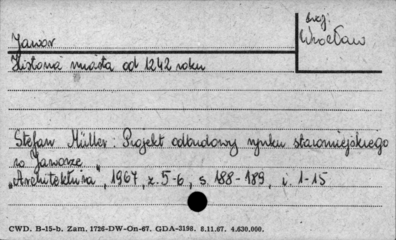 woj:
Wrocław
Jawor
Historia miasta od 1242 roku
Stefan Müller: Projekt odbudowy rynku staromiejskiego
w Jaworze
„Architektura", 1967, z. 5-6, s. 188-189, i. 1-15
CWD. B-15-b. Zam. 1726-DW-On-67. GDA-3198. 8.11.67. 4.630.000.